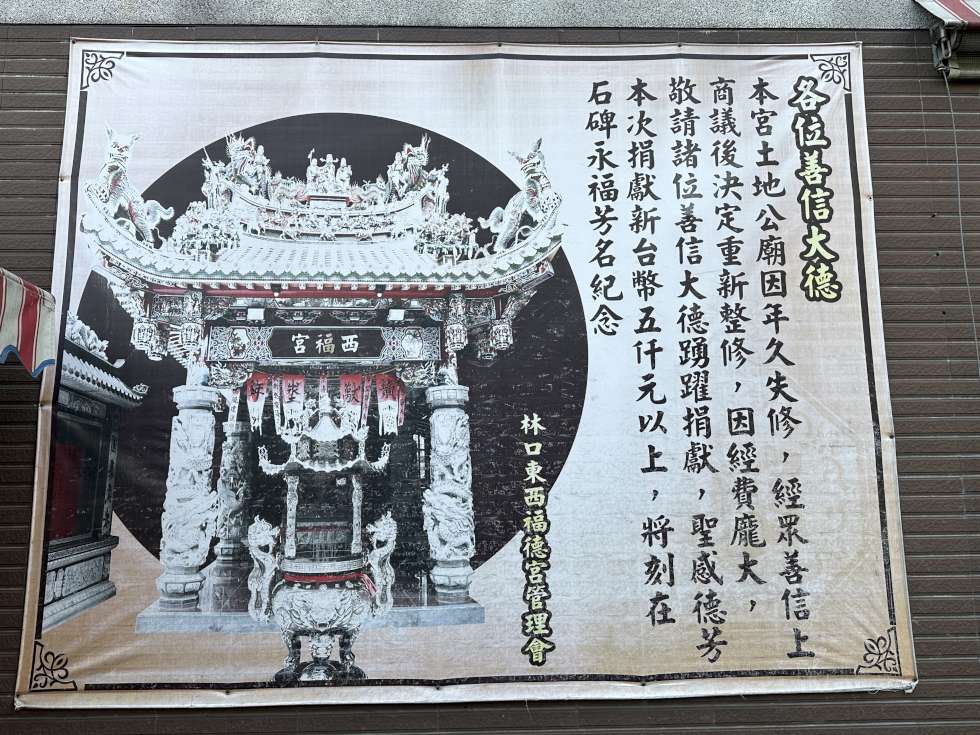 各位善信大德
本宮土地公廟因年久失修，經眾善信上
商議後決定重新整修，因經費龐大，
敬請諸位善信大德踴躍捐獻，聖感德芳
本次捐獻新台幣五仟元以上，將刻在
石碑永福芳名紀念
林口東西福德宮管理會
宮福西